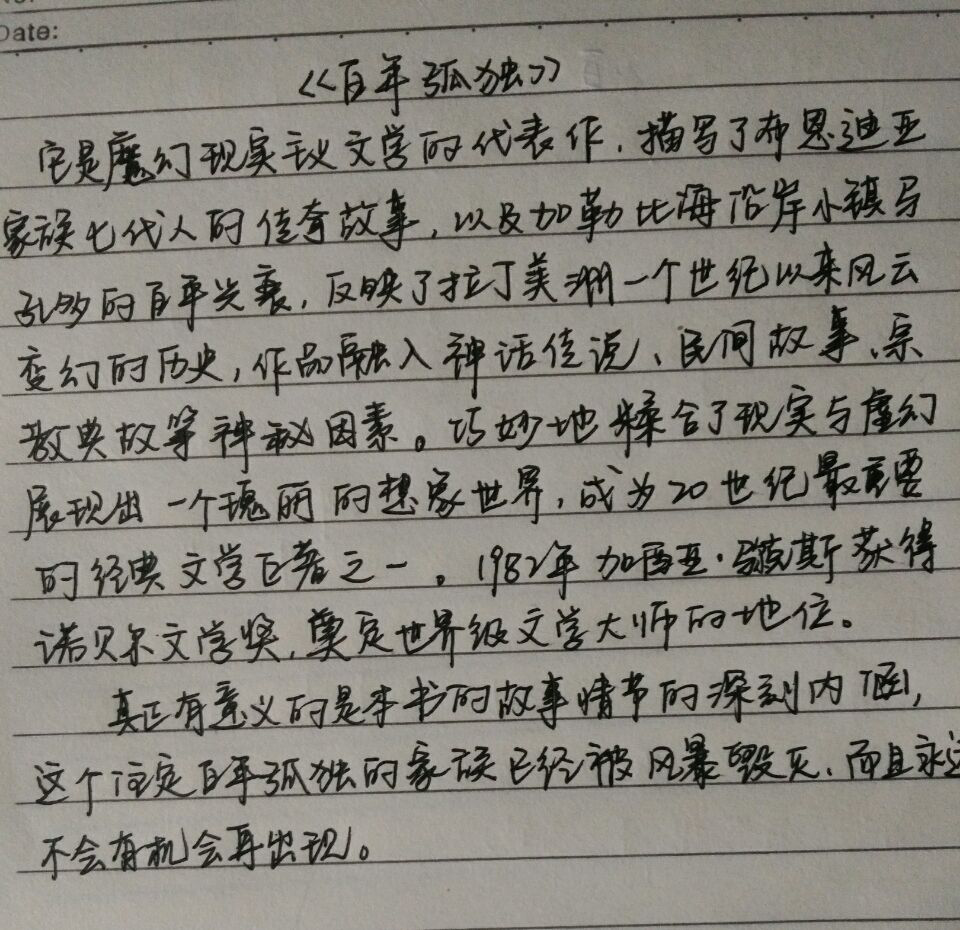 Date:
《百年孤独》
它是魔幻现实主义文学的代表作，描写了布恩迪亚
家族七代人的传奇故事，以及加勒比海沿岸小镇马
孔多的百年兴衰，反映了拉丁美洲一个世纪以来风云
变幻的历史，作品融入神话传说、民间故事、宗
教典故等神秘因素。巧妙地糅合了现实与虚幻
展现出一个瑰丽的想象世界，成为20世纪最重要
的经典文学巨著之一。1982年加西亚·马尔克斯获得
诺贝尔文学奖，奠定世界级文学大师的地位。
真正有意义的是本书的故事情节的深刻内涵，
这个注定百年孤独的家族已经被风暴毁灭、而且永远
不会有机会再出现。